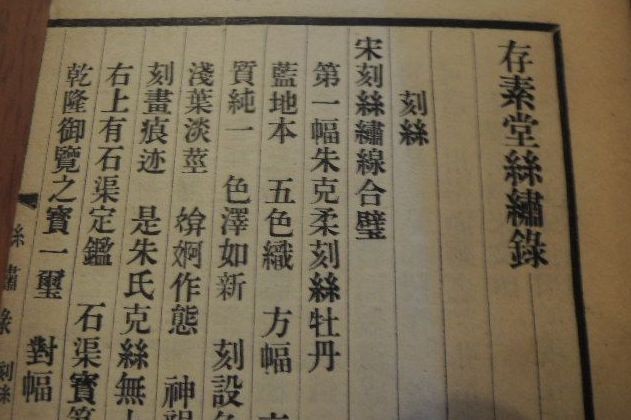 存素堂絲繡錄
刻絲
宋刻絲繡線合璧
第一幅朱克柔刻絲牡丹
藍地本 五色織 方幅
質純一 色澤如新 刻設色
淺葉淡莖 媕婀作態 神
刻畫痕迹 是朱氏克絲無上
右上有石渠定鑑 石渠寶
乾隆御覽之寶一璽 對幅
絲繡錄 刻絲